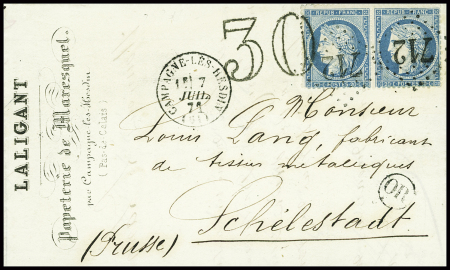 LALIGANT
Papeterie de Maresquel
par Campagne-les-Hesdin
(Pas de Calais)
CAMPAGNE-LES-HESDIN
7
JUIL
(61)
30
REPUB. FRANC.
REPUB. FRANC.
742
742
Monsieur
Louis Lang, fabricant
de tissus métalliques
OR
Schélestadt
(Prusse)